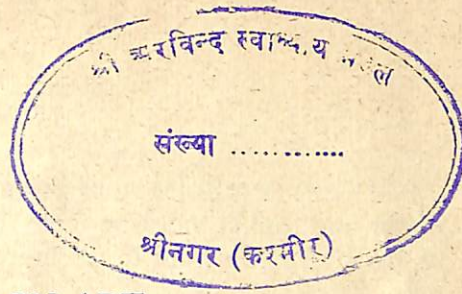 श्री अरविन्द स्वाध्याय मंडल
संख्या ............
श्रीनगर (कश्मीर)